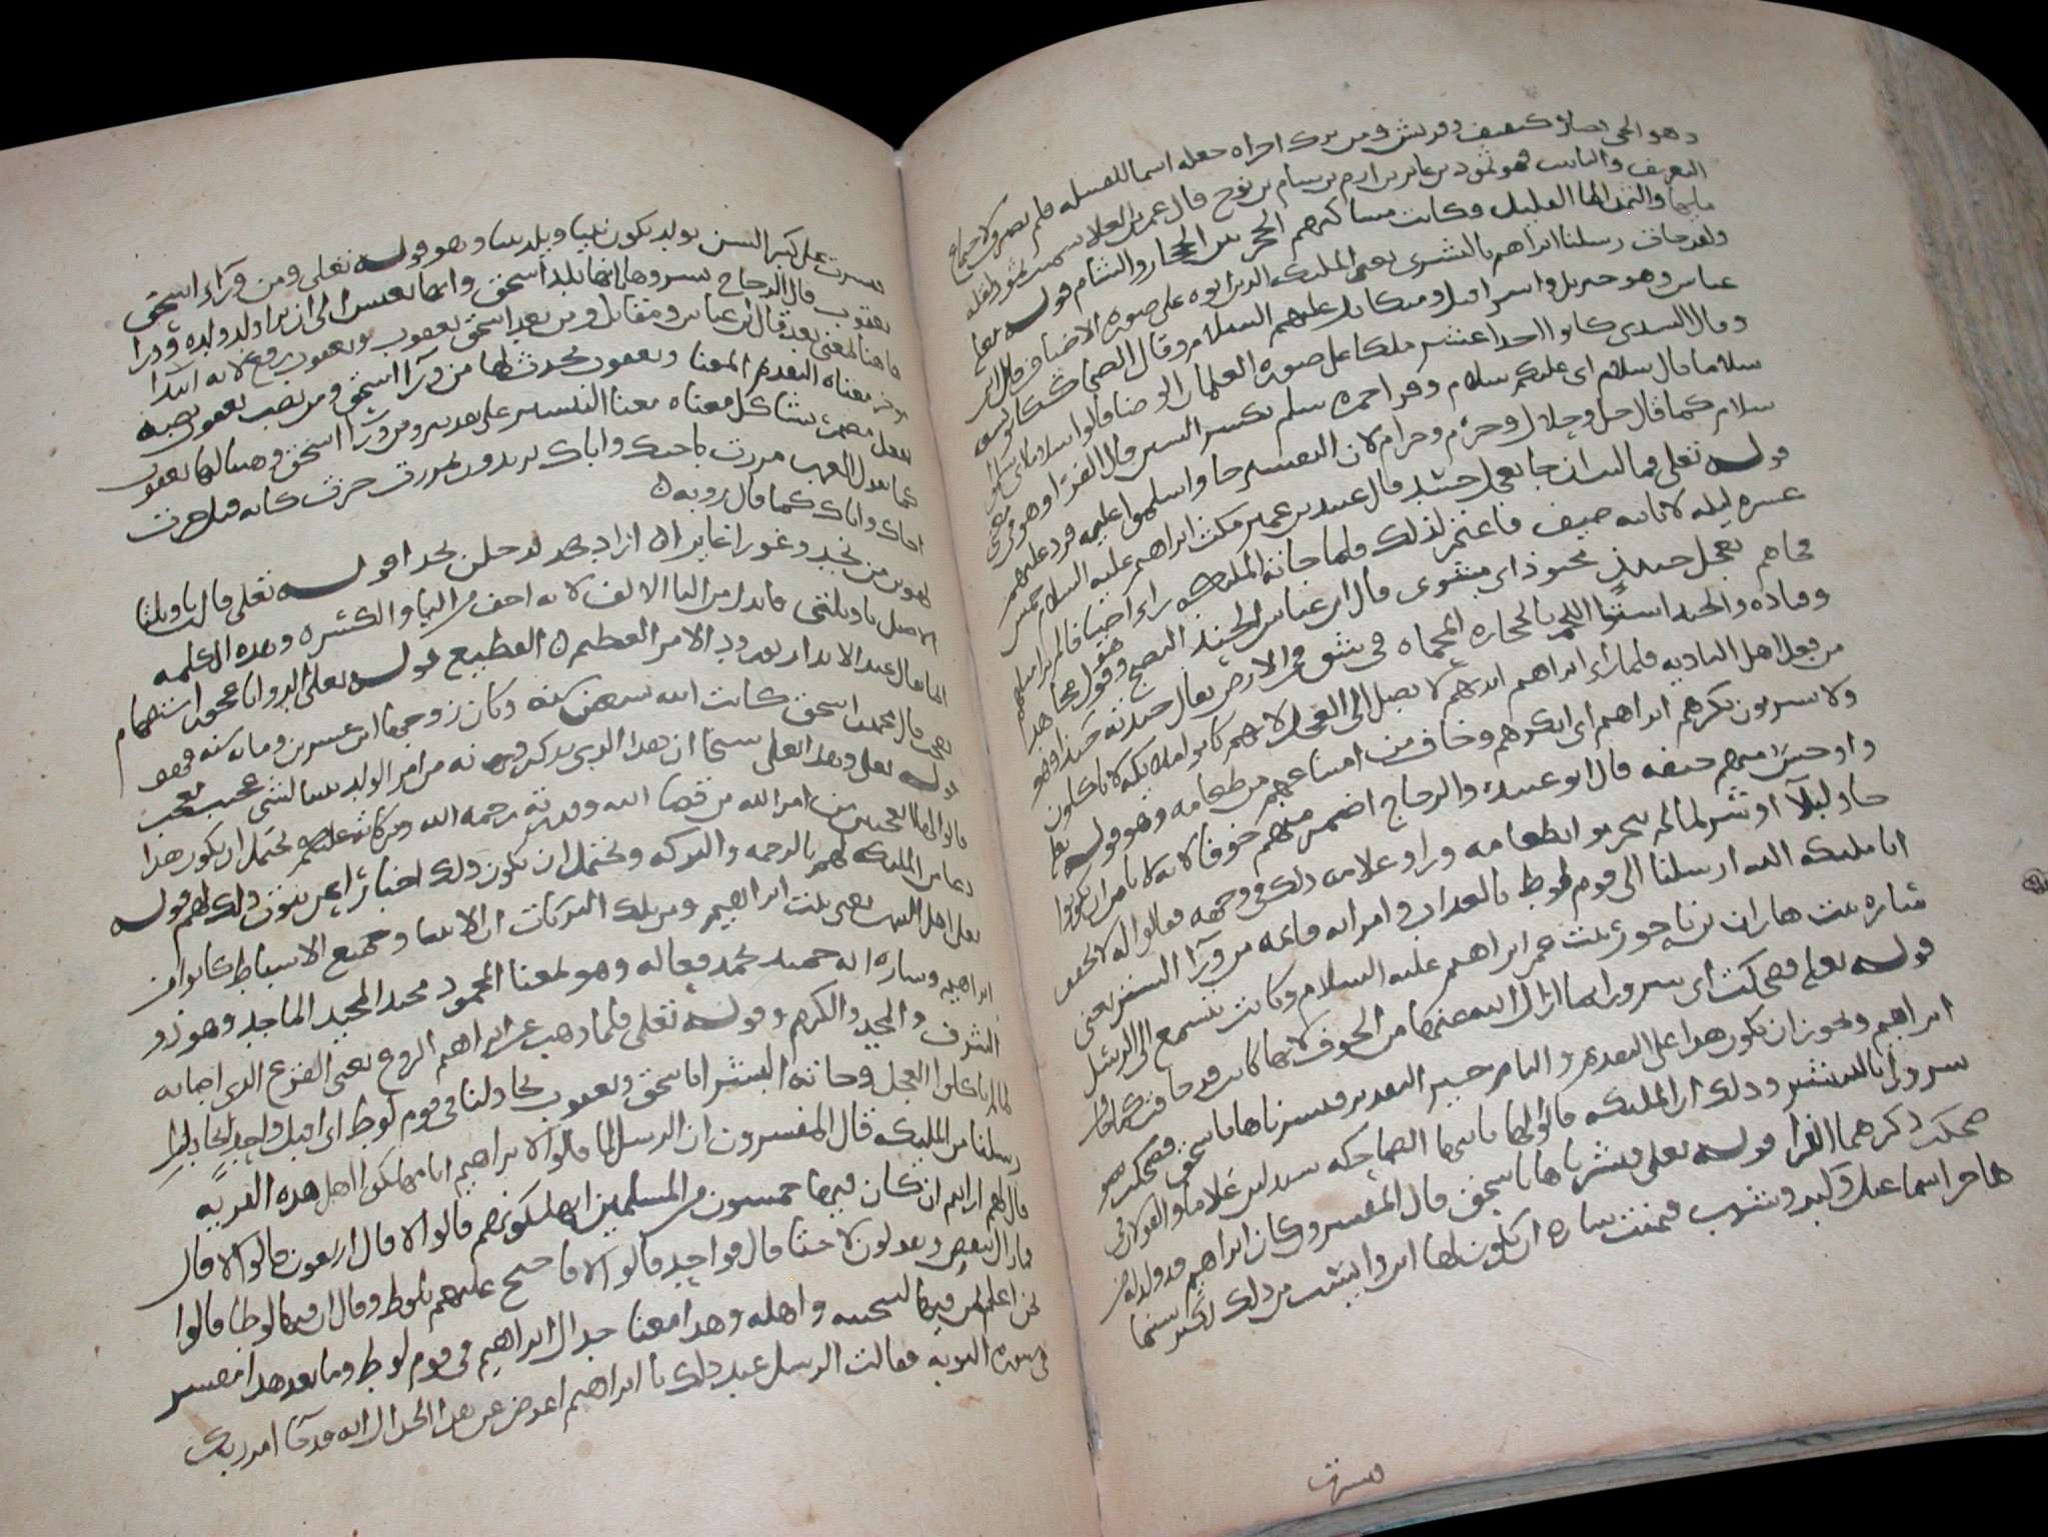 وهو الحى نصار كثقيف وقريش ومن ترك اجراه جعله اسما للقبيله فلم يصرف لاجتماع
التعريف والتانيث وهو ثمود بن عابر بن ارم بن سام بن نوح قال عمرو بن العلا سميت ثمود لقله
مايها والثمد الما القليل وكانت مساكنهم الحجر بين الحجاز والشام قوله تعلى
ولقد جات رسلنا ابراهيم بالبشرى يعنى المليكه الذين اتوه على صوره الاضياف قال ابن
عباس وهو جبريل واسرافيل وميكايل عليهم السلام وقال الضحاك كانوا تسعه
وقال السدى كانوا احد عشر ملكا على صوره الغلمان الوضا قالوا سلاما اى سلموا
سلاما قال سلام اى عليكم سلام وقرا حمزه سلم بكسر السين قال الفرا وهو فى معنى
سلام كما قال حل وحلال وحرم وحرام لان التفسير جا واسلموا عليه فرد عليهم
قوله تعلى فما لبث ان جا بعجل حنيذ قال عبيد بن عمير مكث ابراهيم عليه السلام خمس
عشره ليله لا ياتيه ضيف فاغتم لذلك فلما جاته المليكه راء اضيافا لم ير مثلهم
فجاهم بعجل حنيذ محنوذ اى مشوى قال ابن عباس الحنيذ النضيج وهو قول مجاهد
وقتاده والحنذ اشتوا اللحم بالحجاره المحماه فى شق من الارض يقال حنذته حنذا وهو
من فعل اهل الباديه فلما راء ابراهيم ايديهم لا تصل الى العجل لانهم كانوا ملايكه لا ياكلون
ولا يشربون نكرهم ابراهيم اى انكرهم وخاف من امتناعهم من طعامه وهو قوله تعلى
واوجس منهم خيفه قال ابو عبيده والزجاج اضمر منهم خوفا لانه لا يامن ان يكونوا
جاو لبلا او شر لما لم يتحرموا بطعامه وراو علامه ذلك فى وجهه فقالوا له لا تخف
انا مليكه الله ارسلنا الى قوم لوط بالعذاب وامراته قايمه من ورآ الستر يعنى
ساره بنت هاران بن ناحور بنت عم ابراهيم عليه السلام وكانت تتسمع الى الرسل
قوله تعلى فضحكت اى سرورا لما ازال الله عنها من الخوف لانها كانت قد خافت كما خاف
ابراهيم ويجوز ان يكون هذا على التقديم والتاخير التقدير فبشرناها باسحق فضحكت
سرورا بالتبشير وذلك ان المليكه قالوا لها يا ايتها الضاحكه ستلدين غلاما والقولان
ضحكت ذكرهما الفرا قوله تعلى فبشرناها باسحق قال المفسرون كان ابراهيم قد ولد له من
هاجر اسماعيل وكبر وشب فتمنت ساره ان يكون لها ابن وايست من ذلك لكبر سنها
فبشرت
فبشرت على كبر السن بولد يكون نبيا ويلد نبيا وهو قوله تعلى ومن ورآء اسحق
يعقوب قال الزجاج بشروها بانها تلد اسحق وانها تعيش الى ان ترا ولد ولده وورا
هاهنا بمعنى بعد قال ابن عباس ومقاتل ومن بعد اسحق يعقوب ويعقوب رفع لانه ابتدا
موخر معناه التقديم المعنا ويعقوب يحدث لها من ورآ اسحق ومن نصب يعقوب نصبه
بفعل مضمر يشاكل معناه معنا التبشير على تقدير ومن ورآ اسحق وهبنا لها يعقوب
كما تقول العرب مررت باخيك واباك يريدون بمررت جزت كانه قال جزت
اخاك واباك كما قال روبه
يهوين من نجد وغورا غايرا اراد يدخلن نجدا قوله تعلى قالت يا ويلتا
الاصل يا ويلتى فابدل من اليا الالف لانه اخف من اليا والكسره وهذه الكلمه
انما تقال عند الايذان بورود الامر العظيم الفظيع قوله تعلى االد وانا عجوز استفهام
تعجب قال محمد بن اسحق كانت ابنه تسعين سنه وكان زوجها ابن عشرين ومايه سنه فهو
قوله تعلى وهذا بعلى شيخا ان هذا الذى يذكرونه من امر الولد بيننا لشى عجيب
قالوا لها اتعجبين من امر الله من قضا الله وقدرته رحمه الله وبركاته عليكم يحتمل ان يكون هذا
دعا من المليكه لهم بالرحمه والبركه ويحتمل ان يكون ذلك اخبارا عن ثبوت ذلك لهم قوله
تعلى اهل البيت يعنى بيت ابراهيم ومن تلك البركات ان الانبيا وجميع الاسباط كانوا من
ابراهيم وساره انه حميد تحمد فعاله وهو بمعنا المحمود مجيد المجيد الماجد وهو ذو
الشرف والمجد والكرم وقوله تعلى فلما ذهب عن ابراهيم الروع يعنى الفزع الذى اصابه
لما لم ياكلوا العجل وجاته البشرا باسحق ويعقوب يجادلنا فى قوم لوط اى اقبل واخذ يجادل
رسلنا من المليكه قال المفسرون ان الرسل لما قالوا لابراهيم انا مهلكوا اهل هذه القريه
قال لهم ارايتم ان كان فيها خمسون من المسلمين اتهلكونهم قالوا لا قال اربعون قالوا لا قال
فما زال ينقص ويقولون لا حتا قال فواحد قالوا لا فاحتج عليهم بلوط وقال ان فيها لوطا قالوا
نحن اعلم بمن فيها لننجينه واهله وهذا معنا جدال ابراهيم فى قوم لوط وما بعد هذا مفسر
فى سوره التوبه فقالت الرسل عند ذلك يا ابراهيم اعرض عن هذا الجدال انه قد جآ امر ربك